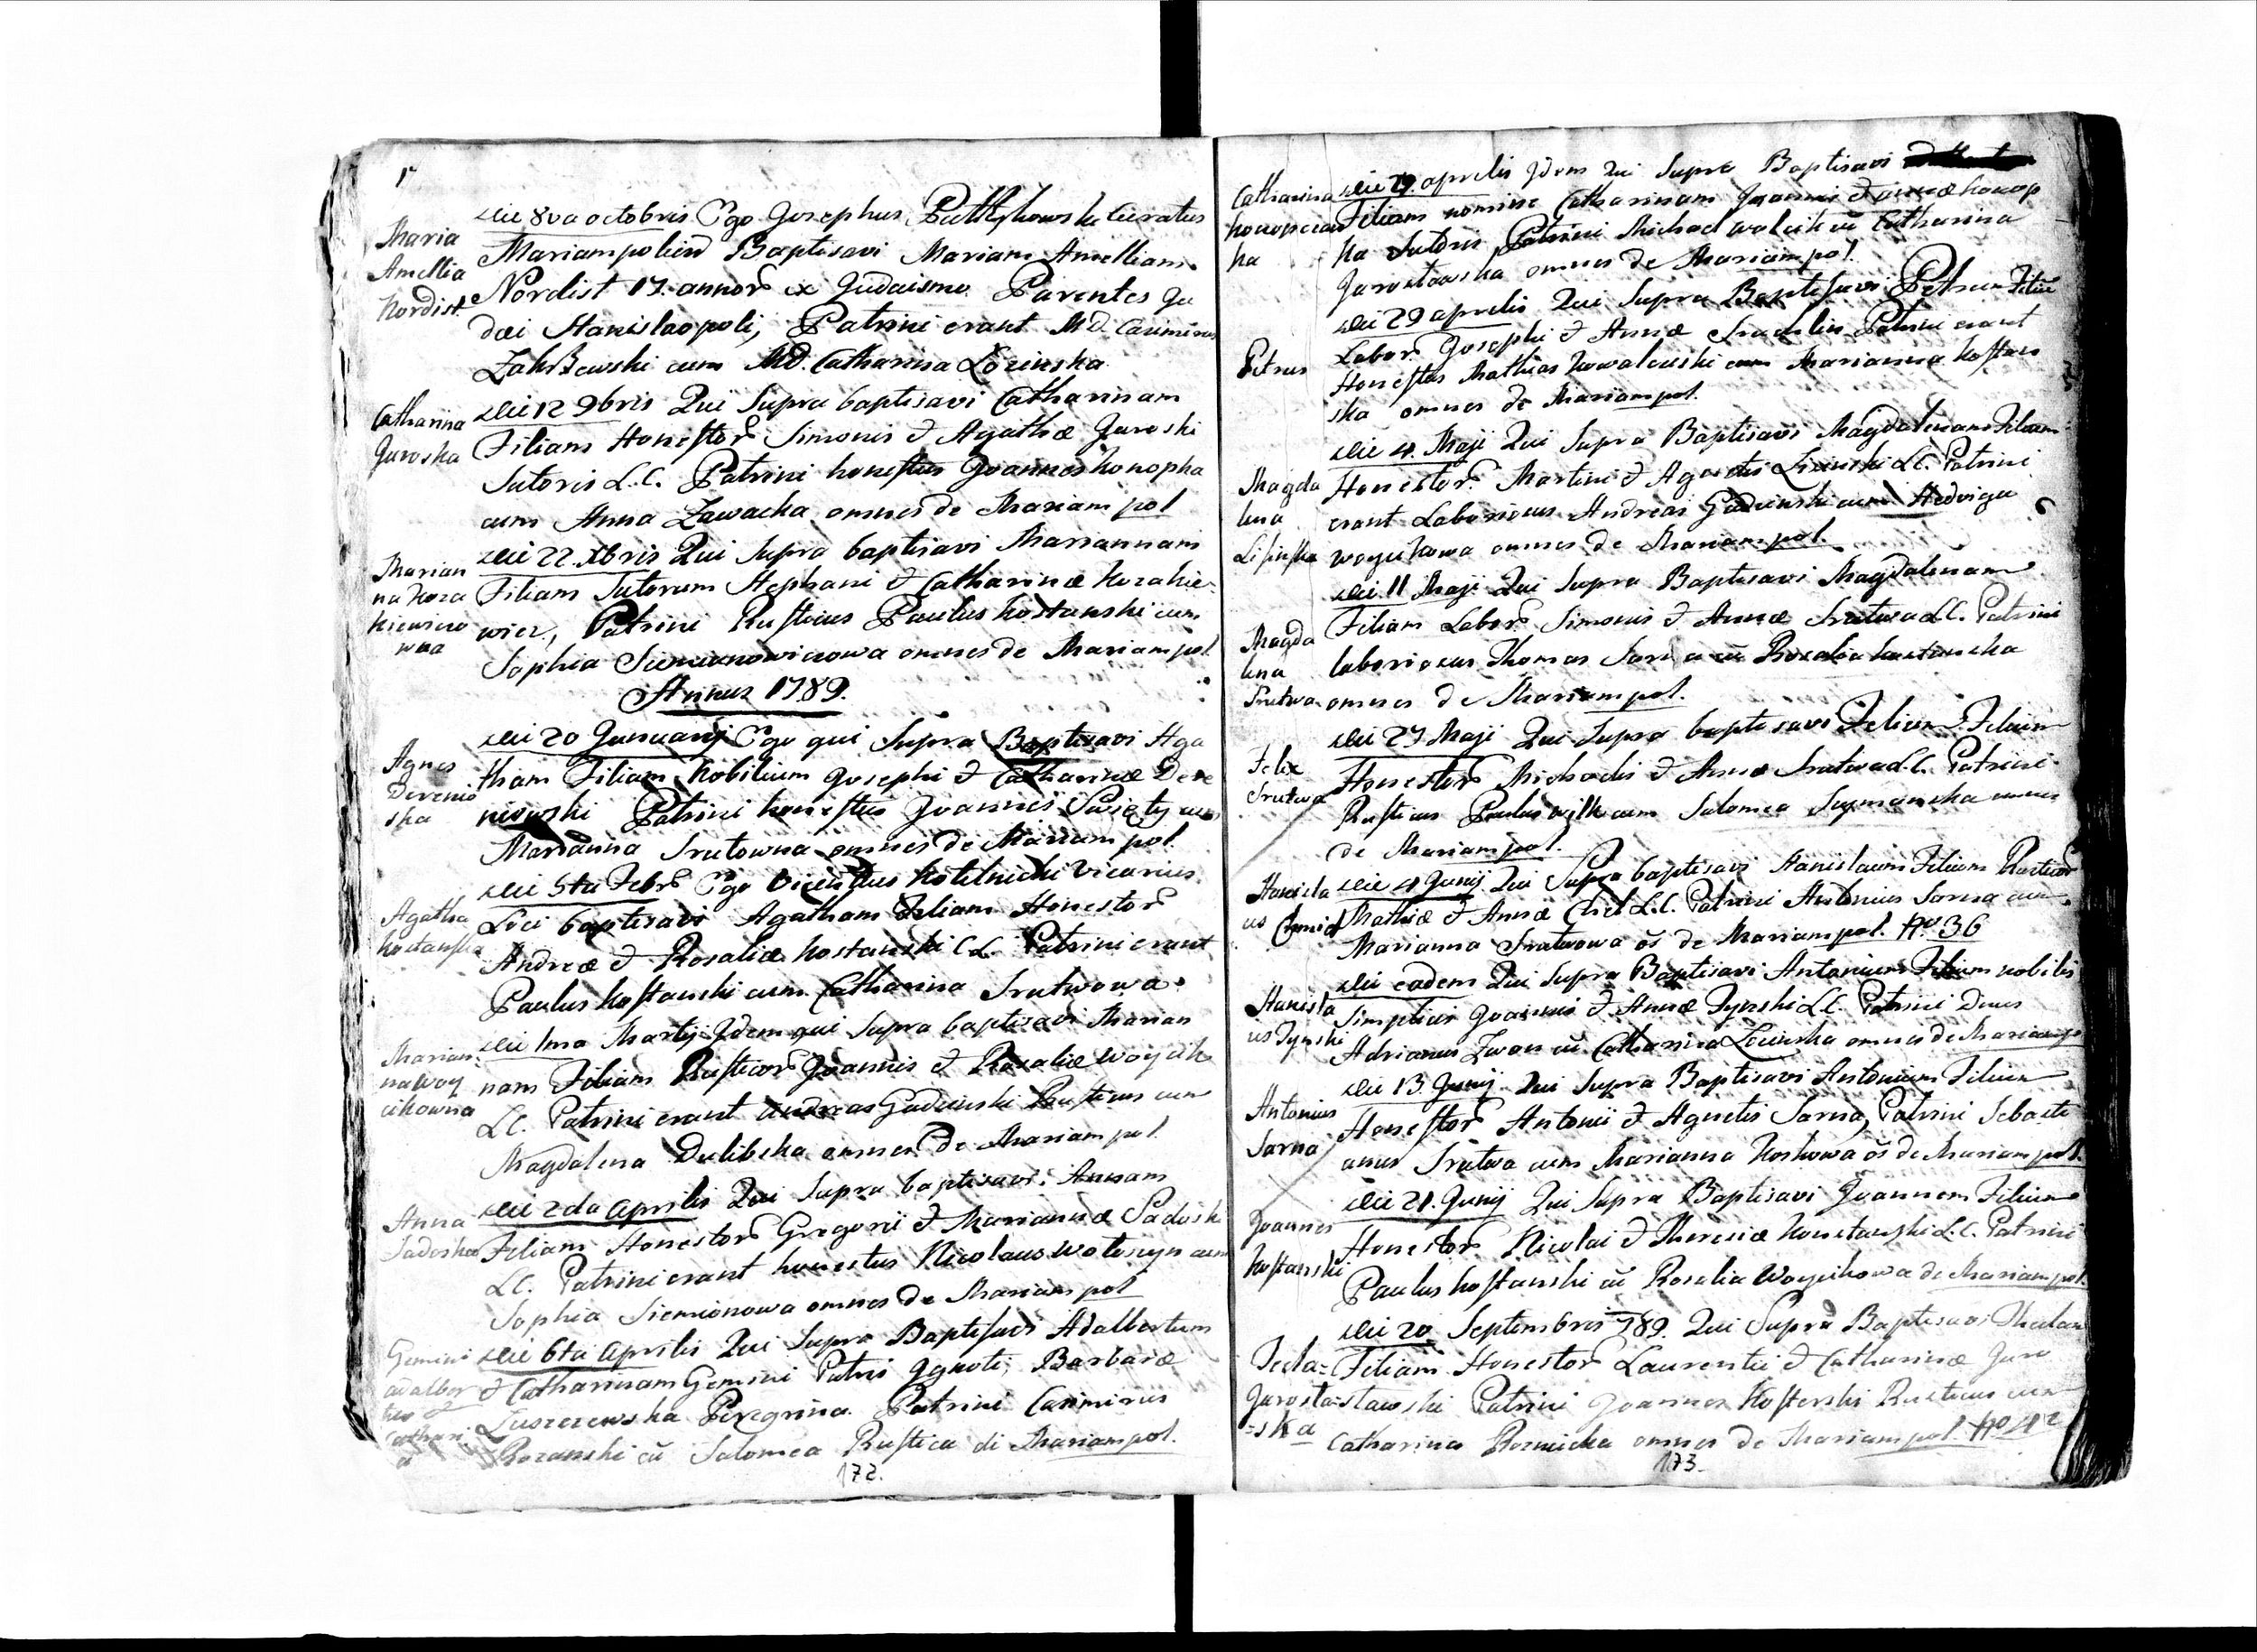 Maria
Amellia
Nordist
Die 8va octobris Ego Josephus Curatus
Mariampolien Baptisavi Mariam Amelliam
Nordist 17. annor ex Judaismo. Parentes Ju
daei Stanislaopoli, Patrini erant MD. Casimirus
Zakrzewski cum MD. Catharina Łozinska
Catharina
Juroska
Die 12 9bris Qui Supra baptisavi Catharinam
Filiam Honestor Simonis & Agathæ Juroski
Sutoris L.C. Patrini honestus Joannes Konopka
cum Anna Zawacka omnes de Mariampol
Marian
na Koza
kiewiczo
wna
Die 22. Xbris Qui Supra baptisavi Mariannam
Filiam Sutorum Stephani & Catharinæ Kozakie
wicz, Patrini Rusticus Paulus Kostanski cum
Sophia Siemianowiczowa omnes de Mariampol
Annus 1789.
Agnes
Derenio
ska
Die 20 Januarij Ego qui Supra Baptisavi Aga
tham Filiam Nobilium Josephi & Catharinæ Dere
niowski Patrini honestus Joannes cum
Marianna Srutowna omnes de Mariampol.
Agatha
Kostanska
Die 5ta Febr Ego Vicentius Kotelnicki Vicarius
Loci baptisavi Agatham Filiam Honestor
Andreæ & Rosaliæ Kostanski C.L. Patrini erant
Paulus Kostanski cum Catharina Srutwowa
Marian
na Woy
cikowna
Die 1ma Martij Idem qui Supra baptisavi Marian
nam Filiam Rusticor Joannis & Rosaliæ Woycik
LC. Patrini erant Andreas Gadzinski Rusticus cum
Magdalena Dulibska omnes de Mariampol
Anna
Sadoska
Die 2da Aprilis Qui Supra baptisavi Annam
Filiam Honestor Gregorii & Mariannæ Sadoski
LC. Patrini erant honestus Nicolaus Wołoszyn cum
Sophia Siemionowa omnes de Mariampol
Gemini
adalber
tus &
Cathari
a
Die 6ta Aprilis Qui Supra Baptisavi Adalbertum
& Catharinam Gemini Patris Ignoti, Barbaræ
Łuszczewska Peregrina. Patrini Casimirus
Rozanski cū Salomea Rustica di Mariampol.
172.
Catharina
Konopczan
ka
Die 29. aprilis Idem Qui Supra Baptisavi
Filiam nomine Catharinam Joannis & Annæ Konop
ka Sutoris Patrini Michael Walcik cū Catharina
Jarosławska omnes de Mariampol.
Petrus
Die 29 aprilis Qui Supra Baptisavi Petrum Filiū
Labor Josephi & Annæ Patrini erant
Honestus Mathias Kowalewski cum Marianna Kostan
ska omnes de Mariampol.
Magda
lena
Lisinska
Die 4. Maji Qui Supra Baptisavi Magdalenam Filiam
Honestor Martini & Agnetis Lisinski LC. Patrini
erant Laboriosus Andreas Gadzinski cum Hedviga
Woycikowa omnes de Mariampol.
Magda
lena
Srutwa
Die 11 Maji Qui Supra Baptisavi Magdalenam
Filiam Labor Simonis & Annæ Srutwa LC. Patrini
laboriosus Thomas Sarna cū Rosalia Kostanska
omnes de Mariampol.
Felix
Srutwa
Die 27 Maji Qui Supra baptisavi Felicem Filium
Honestor Michaelis & Annæ Srutwa L.C. Patrini
Rusticus Paulus Wilk cum Salomea Szymanska omnes
de Mariampol.
Stanisla
us Chmiel
Die 4 Junij Qui Supra baptisavi Stanislaum Filium Rusticor
Mathiæ & Annæ L.C. Patrini Antonius Sarna cum
Marianna Srutwowa õs de Mariampol. No. 36
Stanisla
us Tynski
Die eadem Qui Supra Baptisavi Antonium Filium nobilis
Simplicis Joannis & Annæ Tynski LC. Patrini Dnus
Adrianus Zwon cū Catharina Łozinska omnes de Mariampo
Antonius
Sarna
Die 13. Junij Qui Supra Baptisavi Antonium Filium
Honestor Antonii & Agnetis Sarna, Patrini Sebasti
anus Srutwa cum Marianna Koskowa õs de Mariampol.
Joannes
Kostanski
Die 21. Junij Qui Supra Baptisavi Joannem Filium
Honestor Nicolai & Theresiæ Konstanski L.C. Patrini
Paulus Kostanski cū Rosalia Woycikowa de Mariampol.
Tecla=
Jarosła=
=ska
Die 20 Septembris 789. Qui Supra Baptisavi Theclam
Filiam Honestor Laurentii & Catharinæ Jaro
sławski Patrini Joannes Kosterski Rusticus cum
Catharina Roznicka omnes de Mariampol. No 42
173.